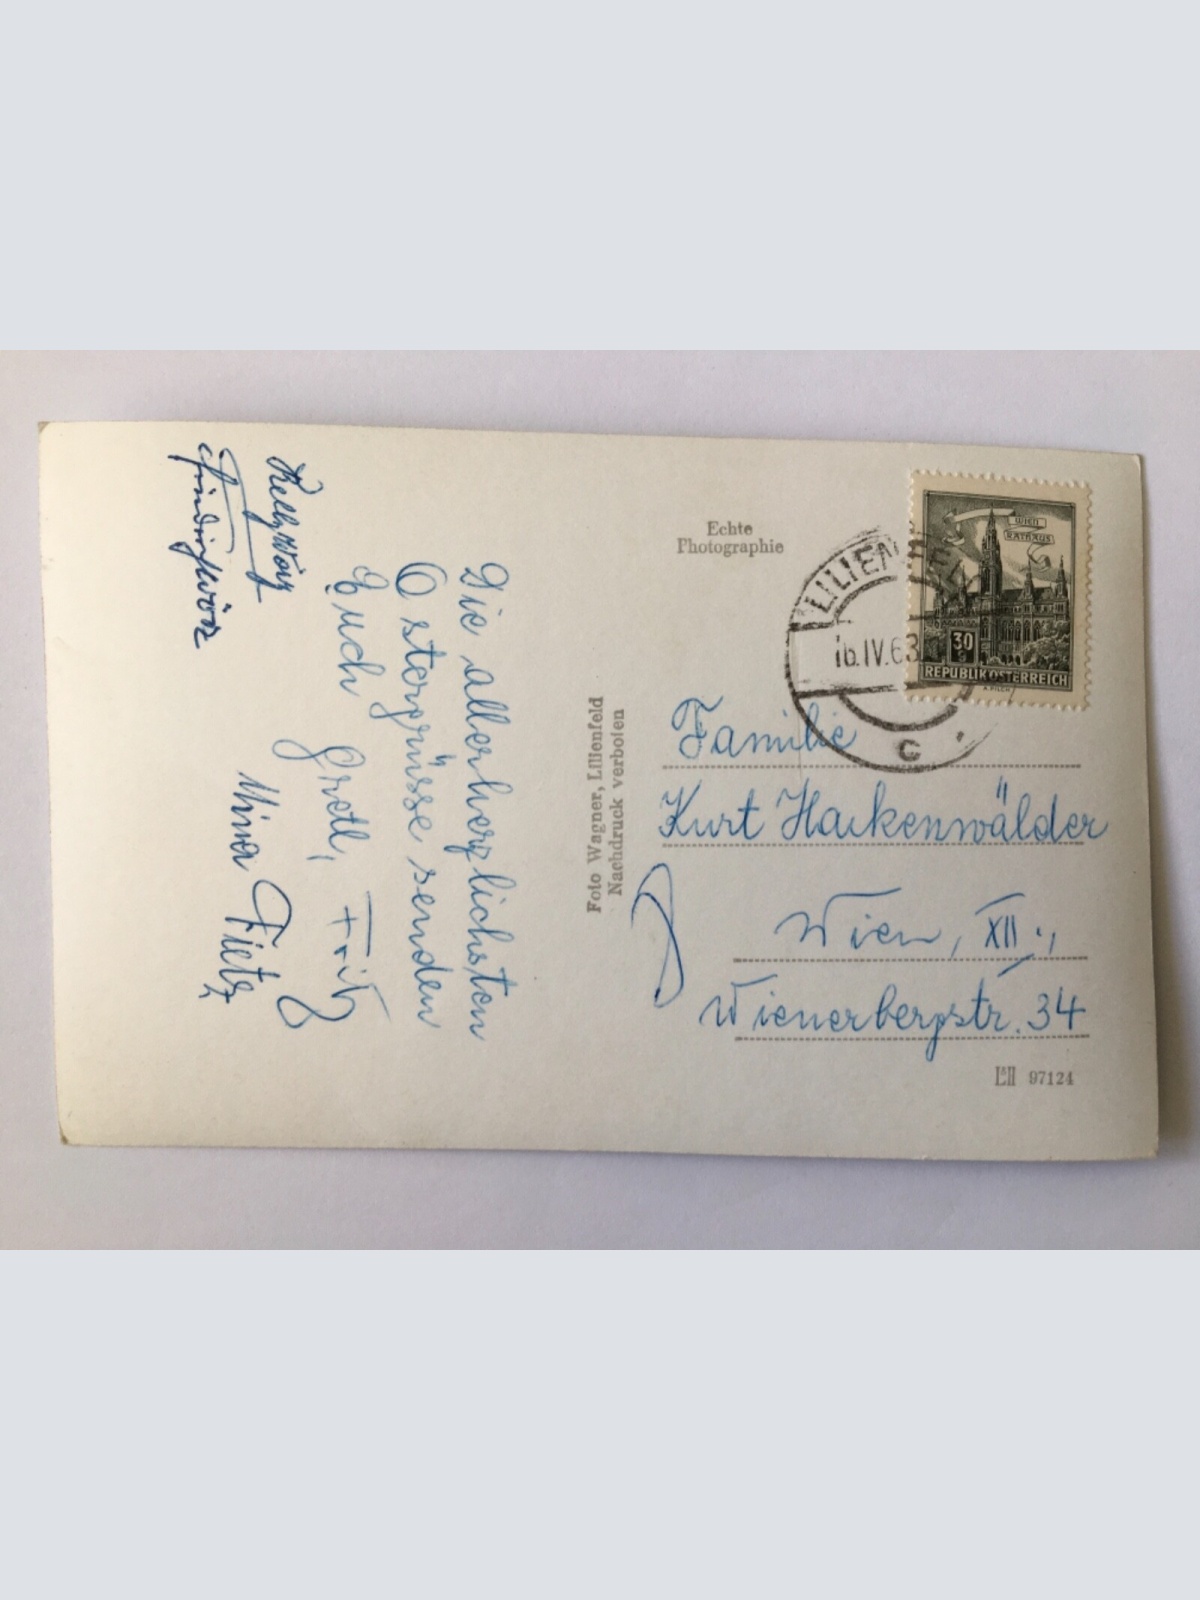 Die allerherzlichsten
Ostergrüsse senden
Euch Gretl, Fritz
Mina Fietz
Echte
Photographie
Foto Wagner, Lilienfeld
Nachdruck verboten
WIEN
RATHAUS
30
g
REPUBLIK ÖSTERREICH
A. PILCH
LILIENFELD
16.IV.63
c
Familie
Kurt Hackenwälder
Wien, XII.,
Wienerbergstr. 34
97124